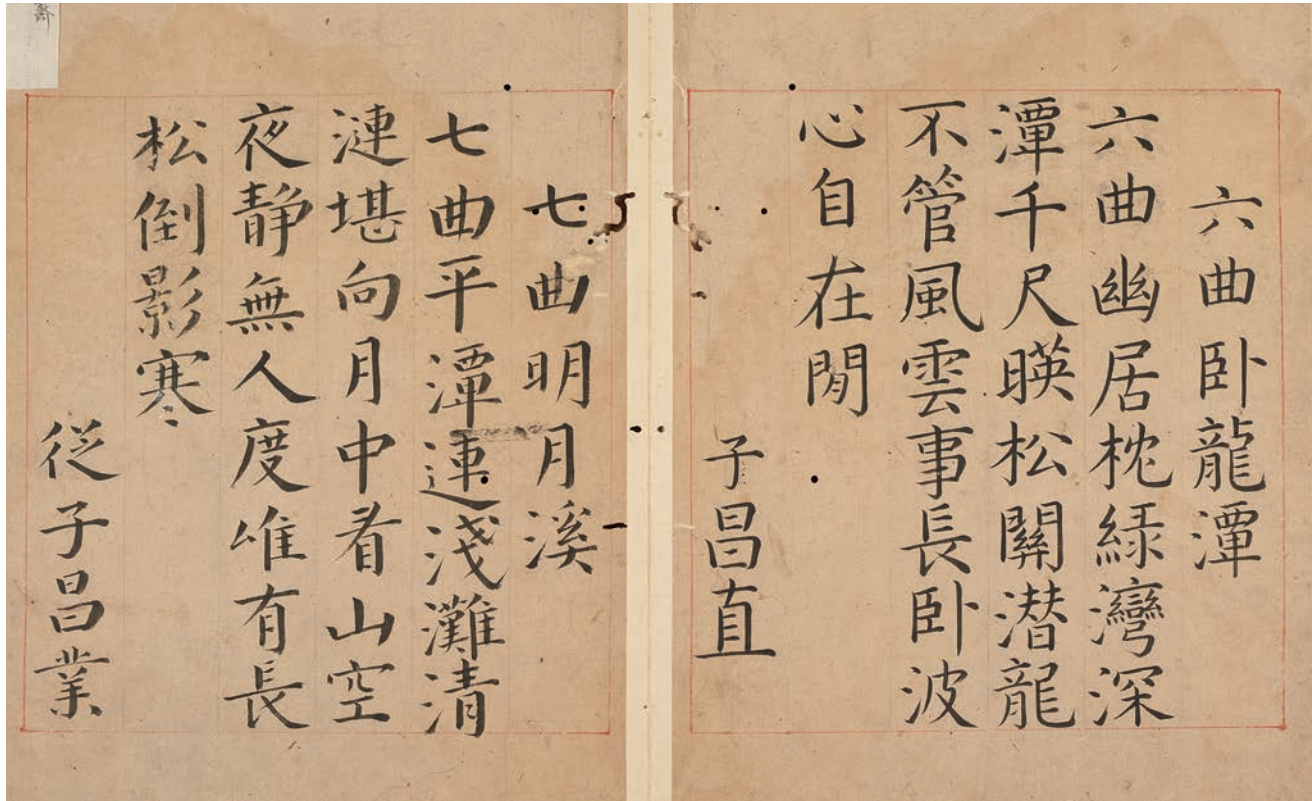 六曲卧龍潭
六曲幽居枕綠灣深
潭千尺暎松關潜龍
不管風雲事長卧波
心自在閒
子昌直
七曲明月溪
七曲平潭連淺灘清
漣堪向月中看山空
夜静無人度唯有長
松倒影寒
從子昌業
齋